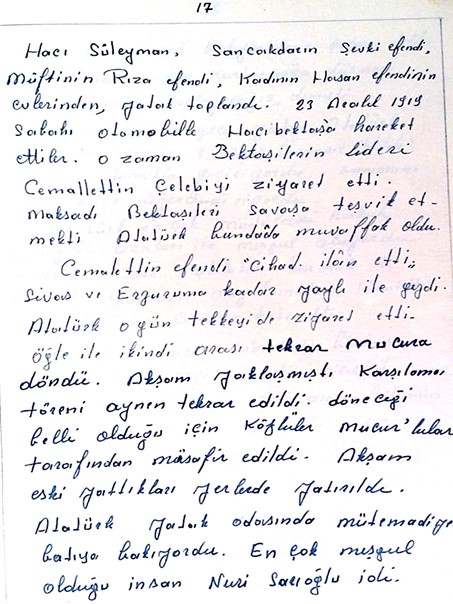 17
Hacı Süleyman, Sancakdarın Şevki efendi,
Müftinin Rıza efendi, Kadının Hasan efendinin
evlerinden, yatak toplandı. 23 Aralık 1919
Sabahı otomobille Hacıbektaşa hareket
ettiler. O zaman Bektaşilerin lideri
Cemallettin Çelebiyi ziyaret etti.
maksadı Bektaşileri savaşa teşvik et-
mekti Atatürk bundada muvaffak oldu.
Cemalettin efendi "Cihad ilân etti"
Sivas ve Erzuruma kadar yaylı ile gezdi.
Atatürk o gün tekkeyi de ziyaret etti.
öğle ile ikindi arası tekrar Mucura
döndü. Akşam yaklaşmıştı Karşılama
töreni aynen tekrar edildi. döneceği
belli olduğu için Köylüler mucur'lular
tarafından müsafir edildi. Akşam
eski yattıkları yerlerde yatırıldı.
Atatürk yatak odasında mütemadiye
batıya bakıyordu. En çok meşgul
olduğu insan Nuri Sacıoğlu idi.